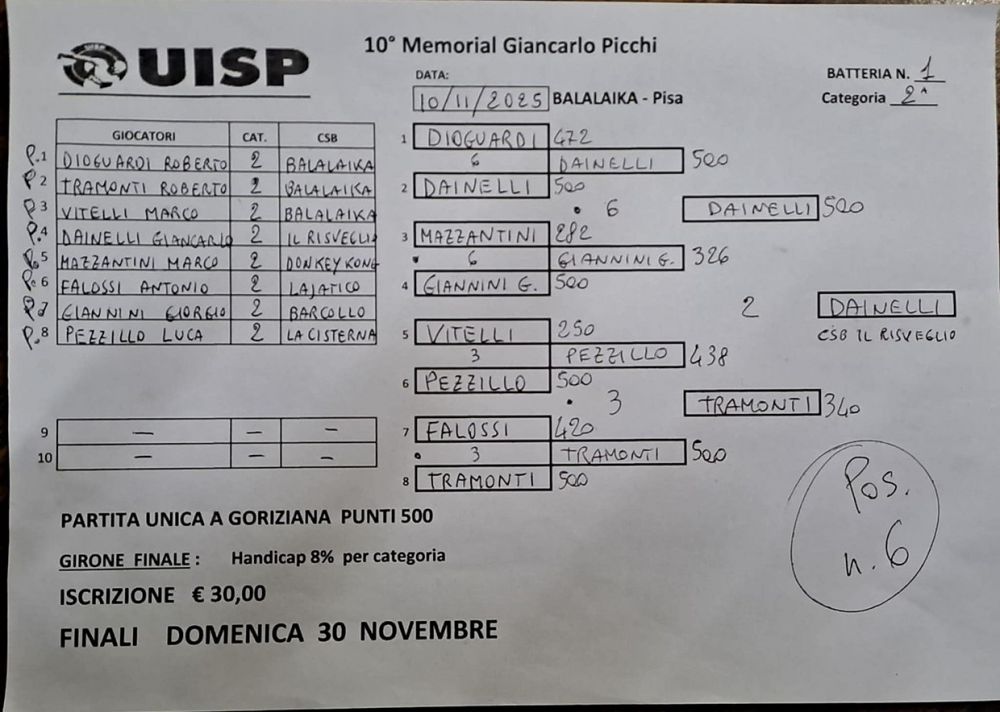 UISP
10° Memorial Giancarlo Picchi
DATA:
10/11/2025 BALALAIKA - Pisa
BATTERIA N. 1
Categoria 2^
GIOCATORI CAT. CSB
P.1 DIOGUARDI ROBERTO 2 BALALAIKA
P 2 TRAMONTI ROBERTO 2 BALALAIKA
P 3 VITELLI MARCO 2 BALALAIKA
P.4 DAINELLI GIANCARLO 2 IL RISVEGLIO
P. 5 MAZZANTINI MARCO 2 DONKEY KONG
P. 6 FALOSSI ANTONIO 2 LAJATICO
P 7 GIANNINI GIORGIO 2 BARCOLLO
P. 8 PEZZILLO LUCA 2 LA CISTERNA
9 — — —
10 — — —
1 DIOGUARDI 472
6 DAINELLI 500
2 DAINELLI 500
6 DAINELLI 500
3 MAZZANTINI 282
6 GIANNINI G. 326
4 GIANNINI G. 500
2 DAINELLI
CSB IL RISVEGLIO
5 VITELLI 250
3 PEZZILLO 438
6 PEZZILLO 500
3 TRAMONTI 340
7 FALOSSI 420
3 TRAMONTI 500
8 TRAMONTI 500
Pos.
n. 6
PARTITA UNICA A GORIZIANA PUNTI 500
GIRONE FINALE : Handicap 8% per categoria
ISCRIZIONE € 30,00
FINALI DOMENICA 30 NOVEMBRE